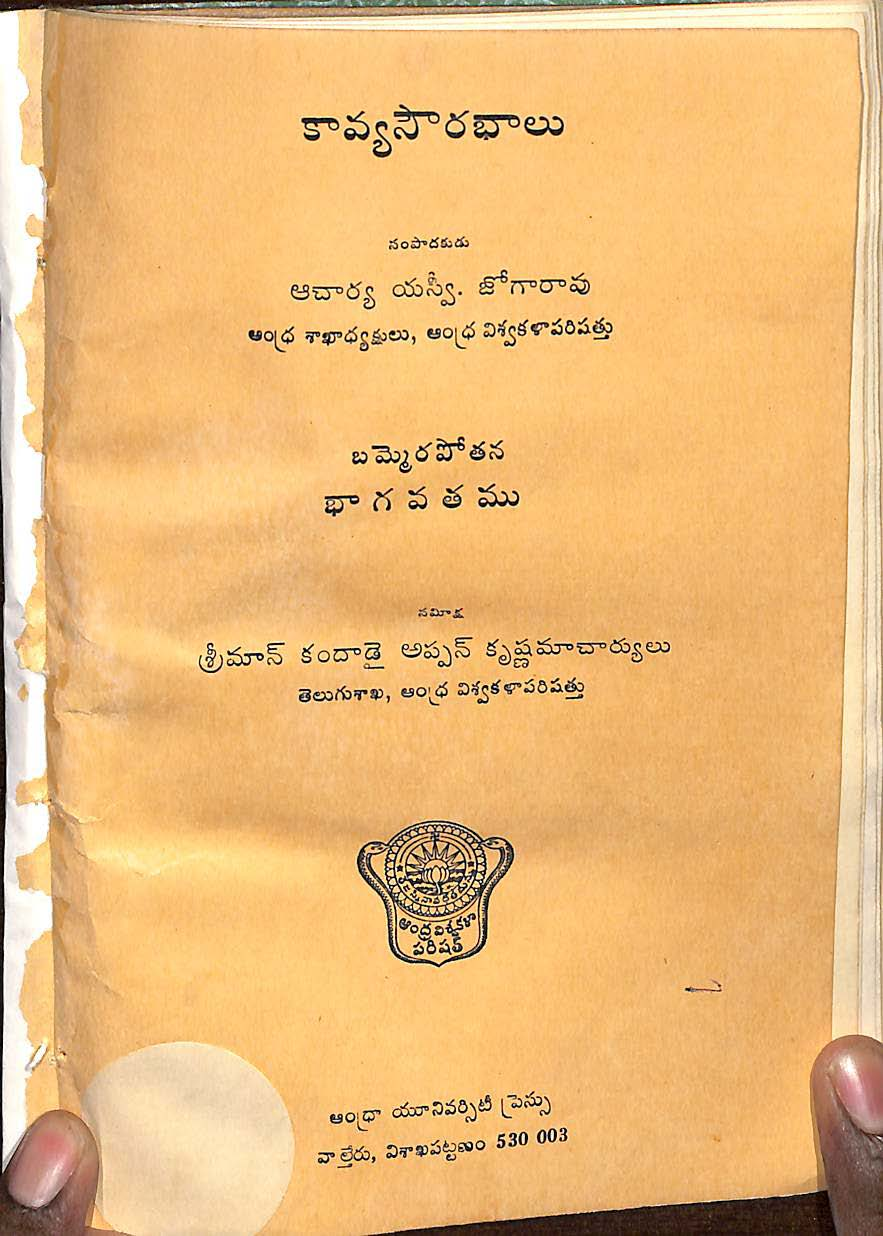 కావ్యసౌరభాలు
సంపాదకుడు
ఆచార్య యస్వీ. జోగారావు
ఆంధ్ర శాఖాధ్యక్షులు, ఆంధ్ర విశ్వకళాపరిషత్తు
బమ్మెరపోతన
భాగవతము
సమీక్ష
శ్రీమాన్ కందాడై అప్పన్ కృష్ణమాచార్యులు
తెలుగుశాఖ, ఆంధ్ర విశ్వకళాపరిషత్తు
ఆంధ్రవిశ్వకళా
పరిషత్
ఆంధ్రా యూనివర్సిటీ ప్రెస్సు
వాల్తేరు, విశాఖపట్టణం 530 003